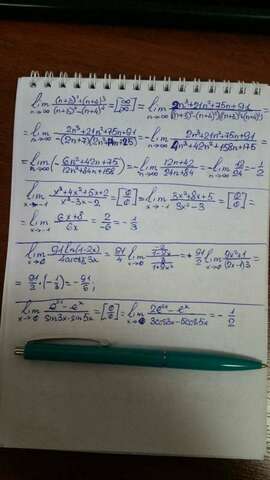 lim n→∞ (n+3)³+(n+4)³ / (n+3)⁴-(n+4)⁴ = [∞/∞] = lim n→∞ 2n³+21n²+75n+91 /
= lim n→∞ 2n³+21n²+75n+91 / = - lim n→∞ 2n³+21n²+75n+91 / 4n³+42n²+158n+175
= lim n→∞ (- 6n²+42n+75 / 12n²+84n+158) = - lim n→∞ 12n+42 / 24n+84 = - lim n→∞ 12/24 = - 1/2
lim x→-1 x³+4x²+5x+2 / x³-3x-2 = [0/0] = lim x→-1 3x²+8x+5 / 3x²-3 = [0/0] =
= lim x→-1 6x+8 / 6x = 2/-6 = - 1/3
lim x→0 ln(1-2x) / 4arctg3x = lim x→0 = lim x→0 9x²+1 / (2x-1)3 =
lim x→0 e²ˣ-eˣ / sin3x-sin5x = [0/0] = lim x→0 2e²ˣ-eˣ / 3cos3x-5cos5x = - 1/2